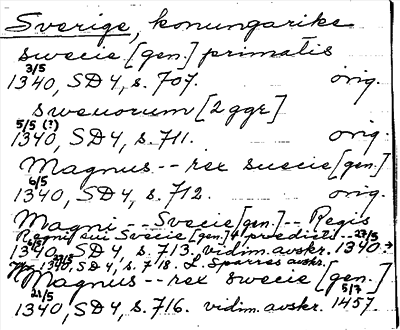 Sverige, konungarike
swecie [gen.] primatis
3/5
1340, SD 4, s. 707. orig.
swenorum [2 ggr]
5/5 (?)
1340, SD 4, s. 711. orig.
Magnus -- rex suecie [gen.]
6/5
1340, SD 4, s. 712. orig.
Magni -- Svecie [gen.] -- Regis
Regni sui Svecie [gen.] predicti -- 27/5
1340, SD 4, s. 713. vidim. avskr. 1340.
1340, SD 4, s. 718. L. Sparres avskr.
Magnus -- rex swecie [gen.]
21/5 5/7
1340, SD 4, s. 716. vidim. avskr. 1457.